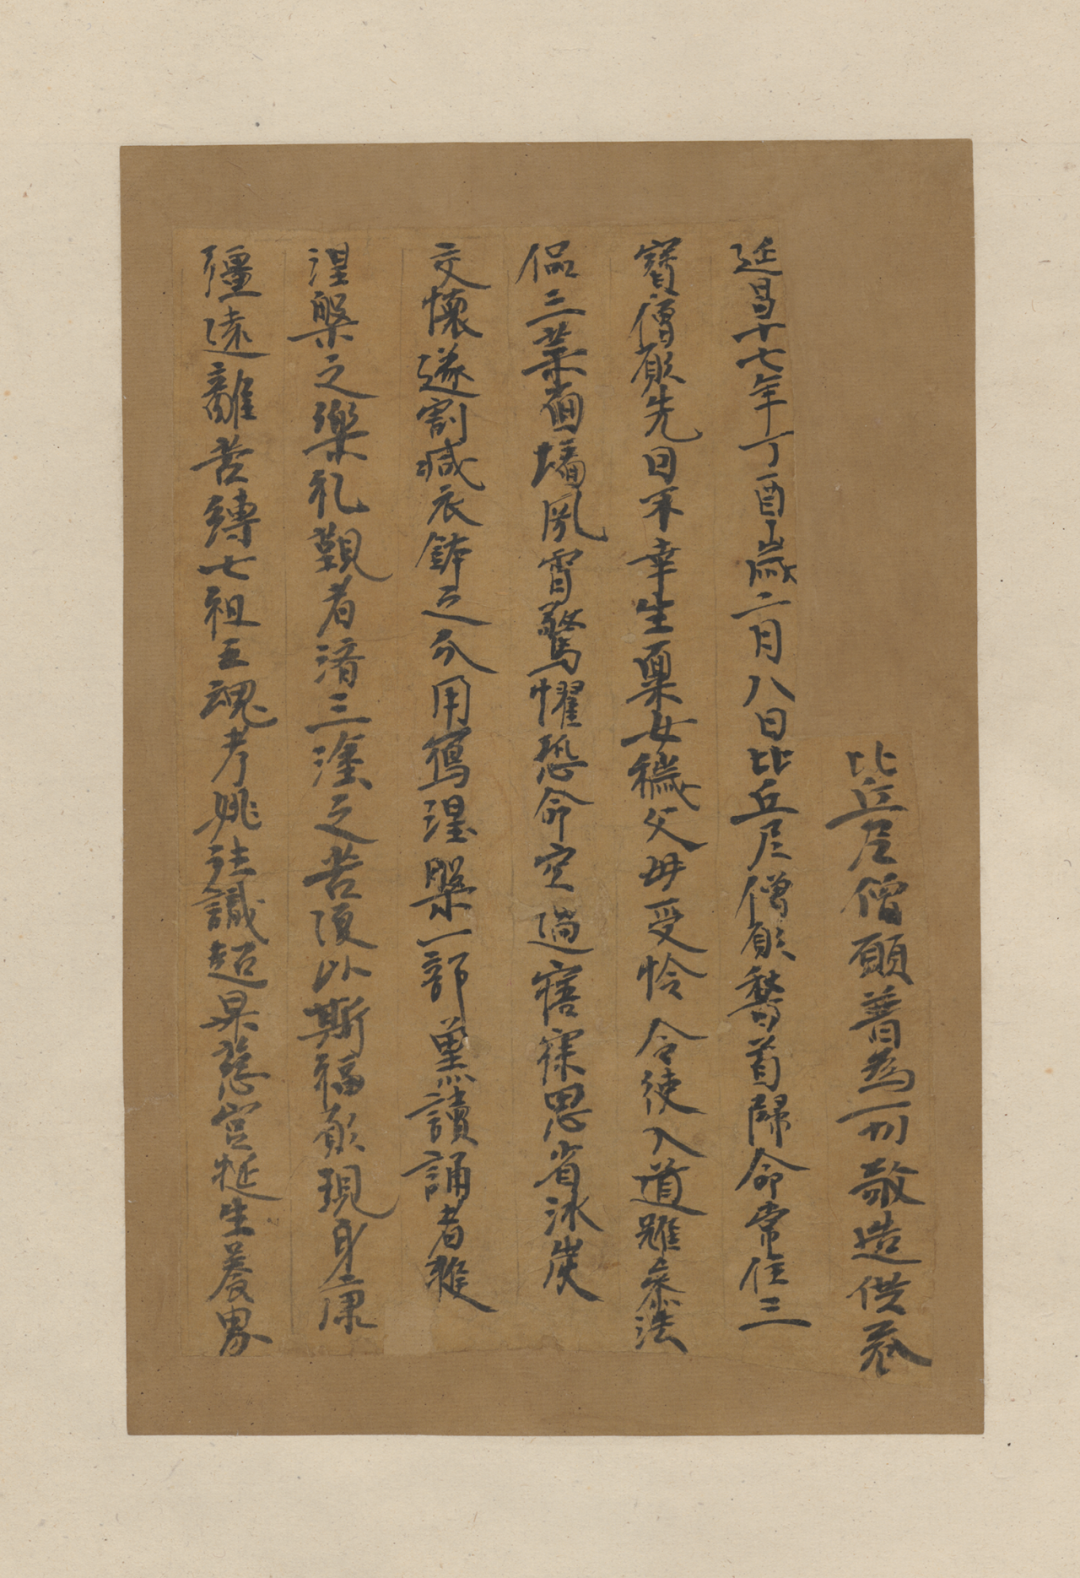 比丘尼僧願普為一切敬造供養
延昌十七年丁酉歲二月八日比丘尼僧願稽首歸命常住三
寶僧願先因不幸生稟女穢父母受怜令使入道雖參法
侶三業面墻夙霄驚懼恐命空過寤寐思省冰炭
交懷遂割減衣鉢之分用寫涅槃一部冀讀誦者獲
涅槃之樂礼觀者濟三塗之苦復以斯福願現身康
彊遠離苦縛七祖五魂考妣往識超昇慈宮誕生養界